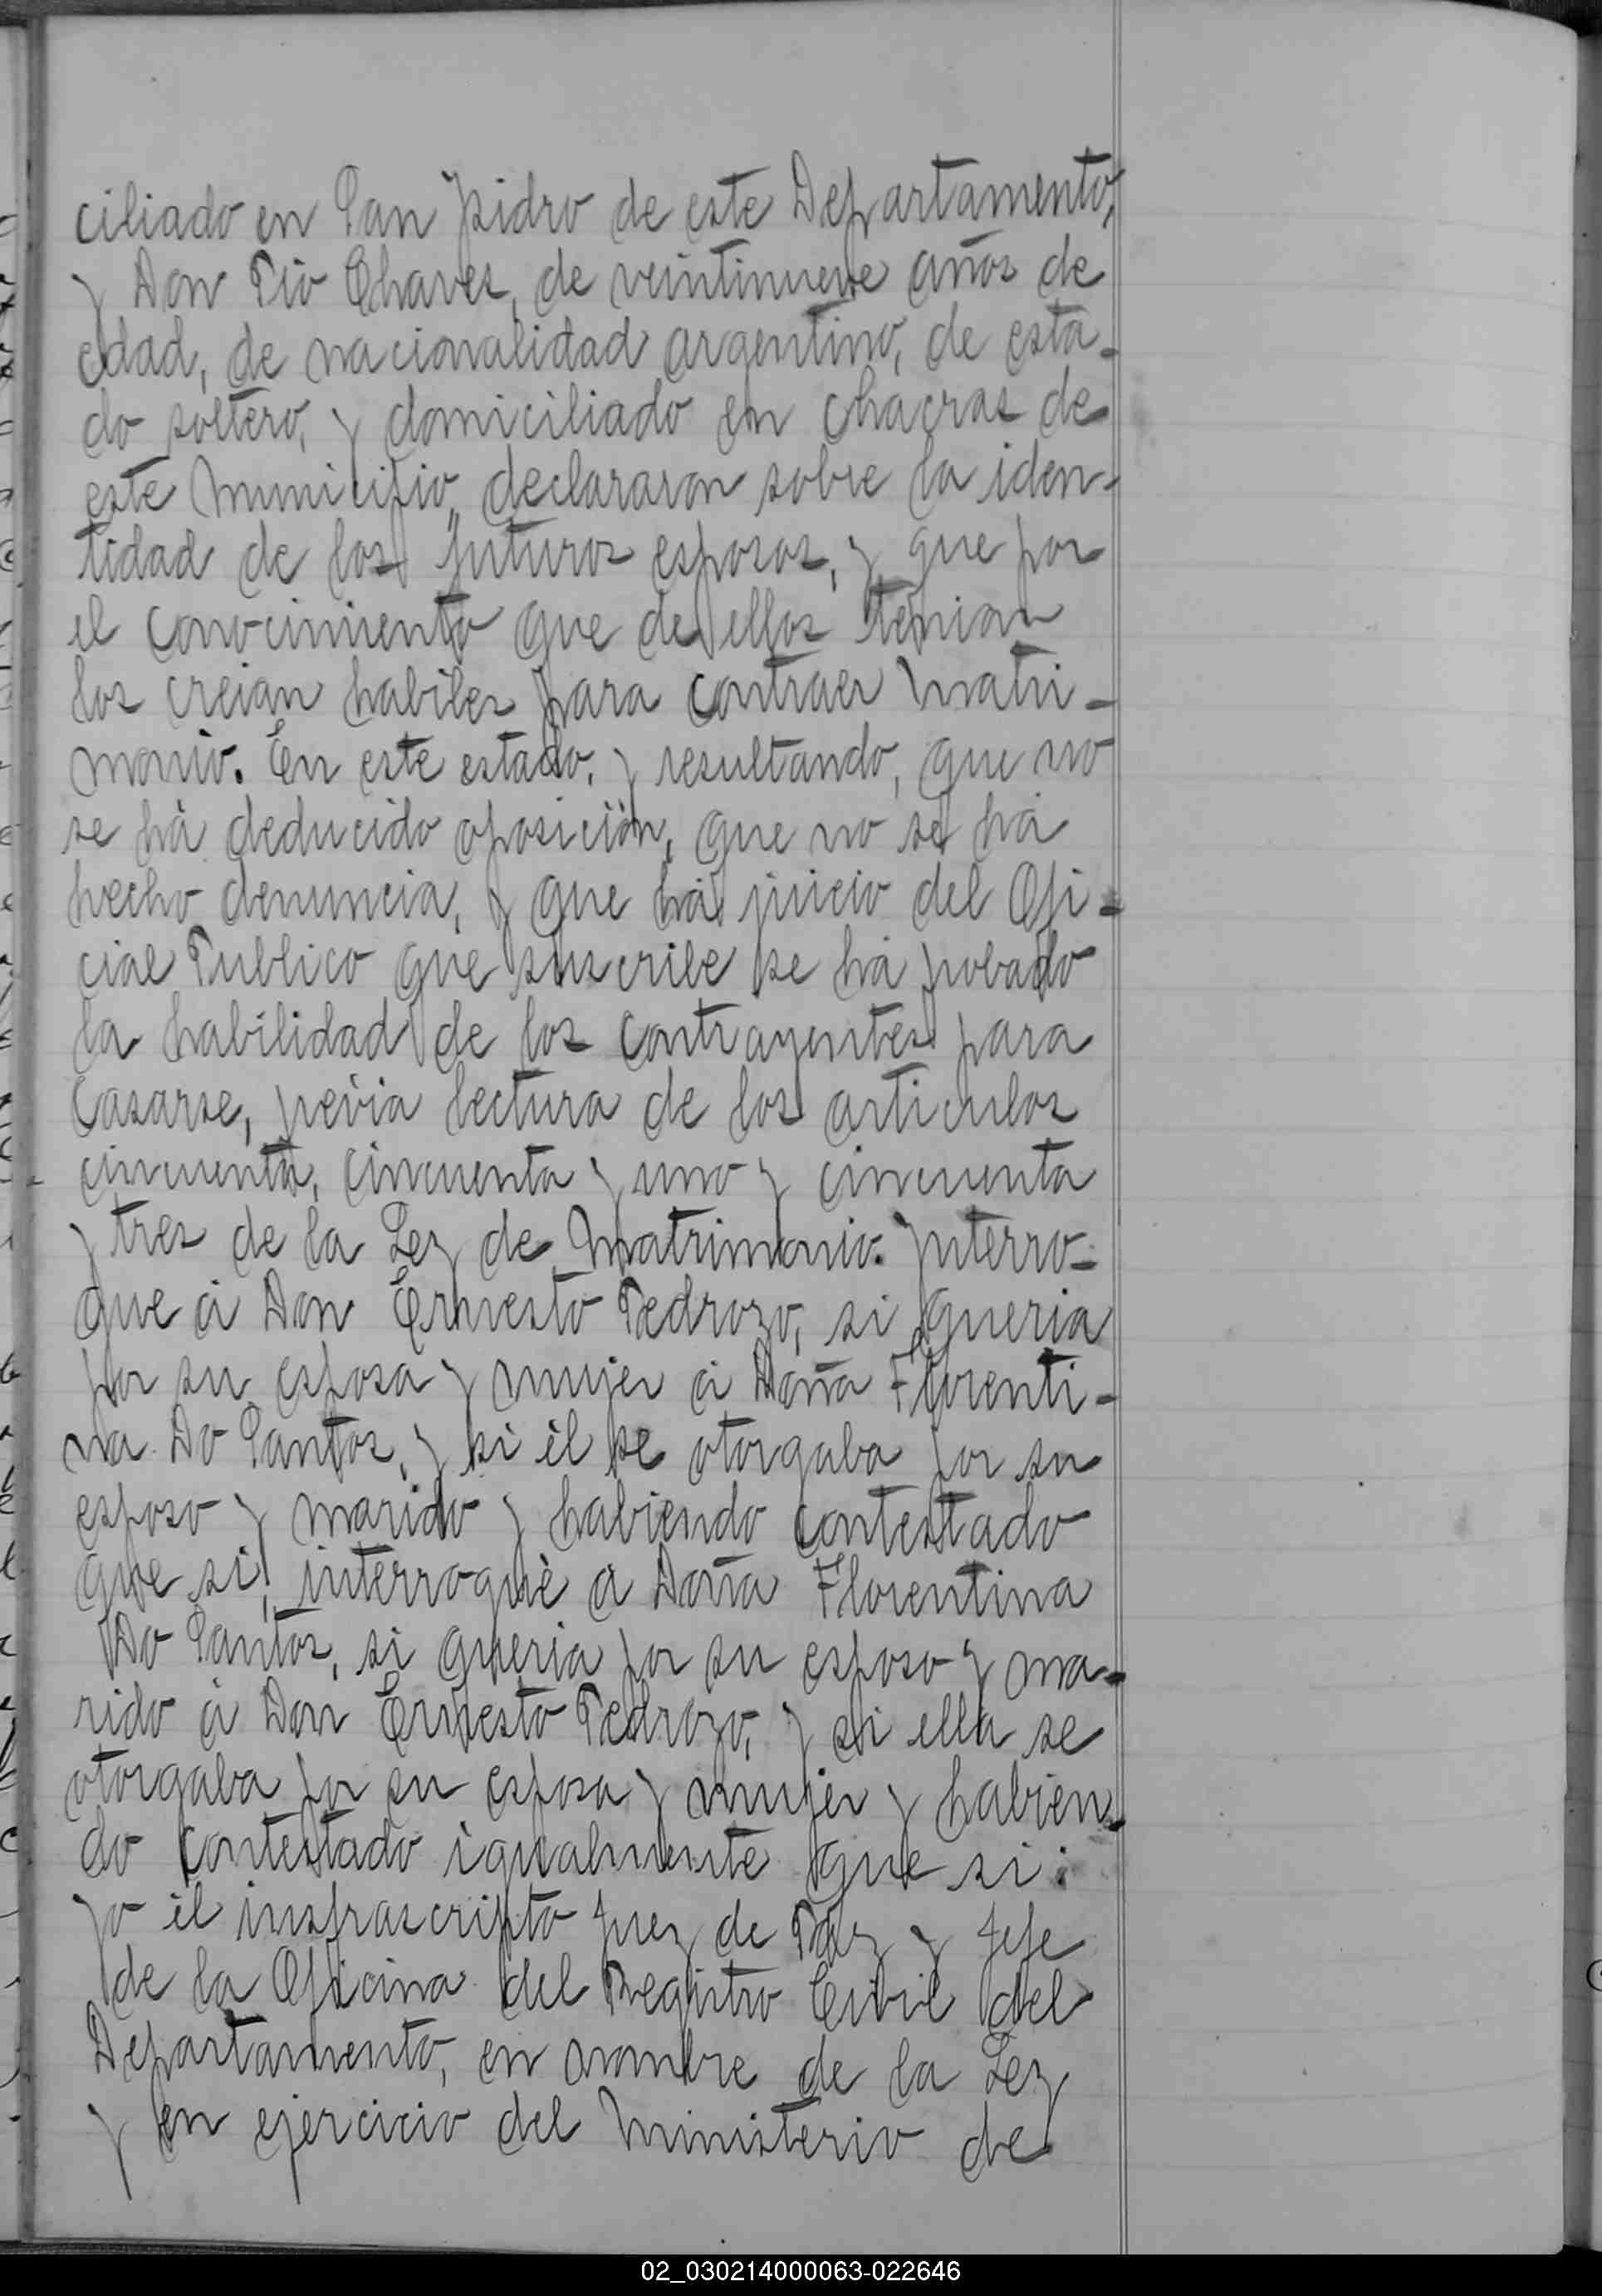 ciliado en San Ysidro de este Departamento,
y Don Pío Chaves, de veintinueve años de
edad, de nacionalidad argentino, de esta-
do soltero, y domiciliado en chacras de
este municipio, declararon sobre la iden-
tidad de los futuros esposos, y que por
el conocimiento que de ellos tenian
los creian habiles para contraer matri-
monio. En este estado, y resultando, que no
se há deducido oposición, que no se há
hecho denuncia, y que há juicio del Ofi-
cial Publico que suscribe se há probado
la habilidad de los contrayentes para
casarse, prévia lectura de los articulos
cincuenta, cincuenta y uno y cincuenta
y tres de la Ley de Matrimonio. Ynterro-
que á Don Ernesto Pedrozo, si queria
por su esposa y mujer á Doña Florenti-
na Do Santos, y si él se otorgaba por su
esposo y marido y habiendo contestado
que si, interrogué á Doña Florentina
Do Santos, si queria por su esposo y ma-
rido á Don Ernesto Pedrozo, y si ella se
otorgaba por su esposa y mujer y habien-
do contestado igualmente que si:
yo él insfrascripto Juez de Paz y Jefe
de la Oficina del Registro Civil del
Departamento, en nombre de la Ley
y en ejercicio del ministerio de
02_030214000063-022646